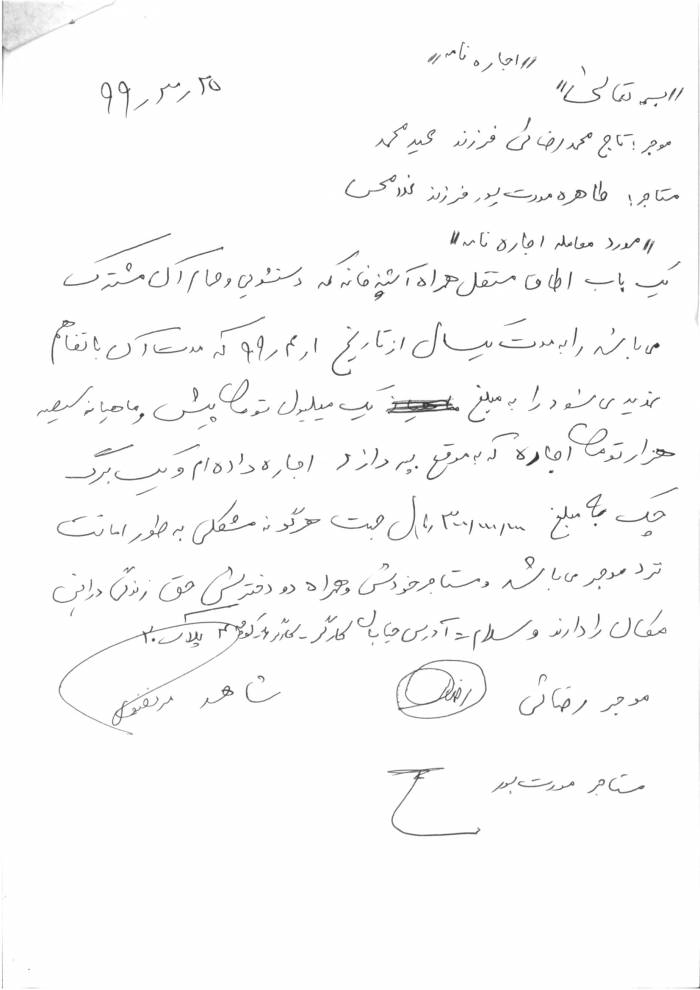 «اجاره نامه»
«بسمه تعالی»
۹۹٫۳٫۲۵
موجر: تاج محمد رضائی فرزند عید محمد
متاجر: طاهره مودت پور فرزند غلامحسن
«مورد معامله اجاره نامه»
یک باب اطاق مستقل همراه آشپزخانه که دستشویی و حمام آن مشترک
می باشد را به مدت یکسال از تاریخ ۹۹٫۴٫۱ که مدت آن با تفاهم
تمدید می شود را به مبلغ یک میلیون تومان پیش و ماهیانه سیصد
هزار تومان اجاره که به موقع بپردازد اجاره داده ام و یک برگ
چک به مبلغ ۳۰۰/۰۰۰/۰۰۰ ریال جهت هرگونه مشکلی به طور امانت
نزد موجر می باشد و مستاجر خودش و همراه دو دخترش حق زندگی در این
مکان را دارند والسلام - آدرس خیابان کارگر - پلاک ۲۰
موجر رضائی
شاهد
مستاجر مودت پور